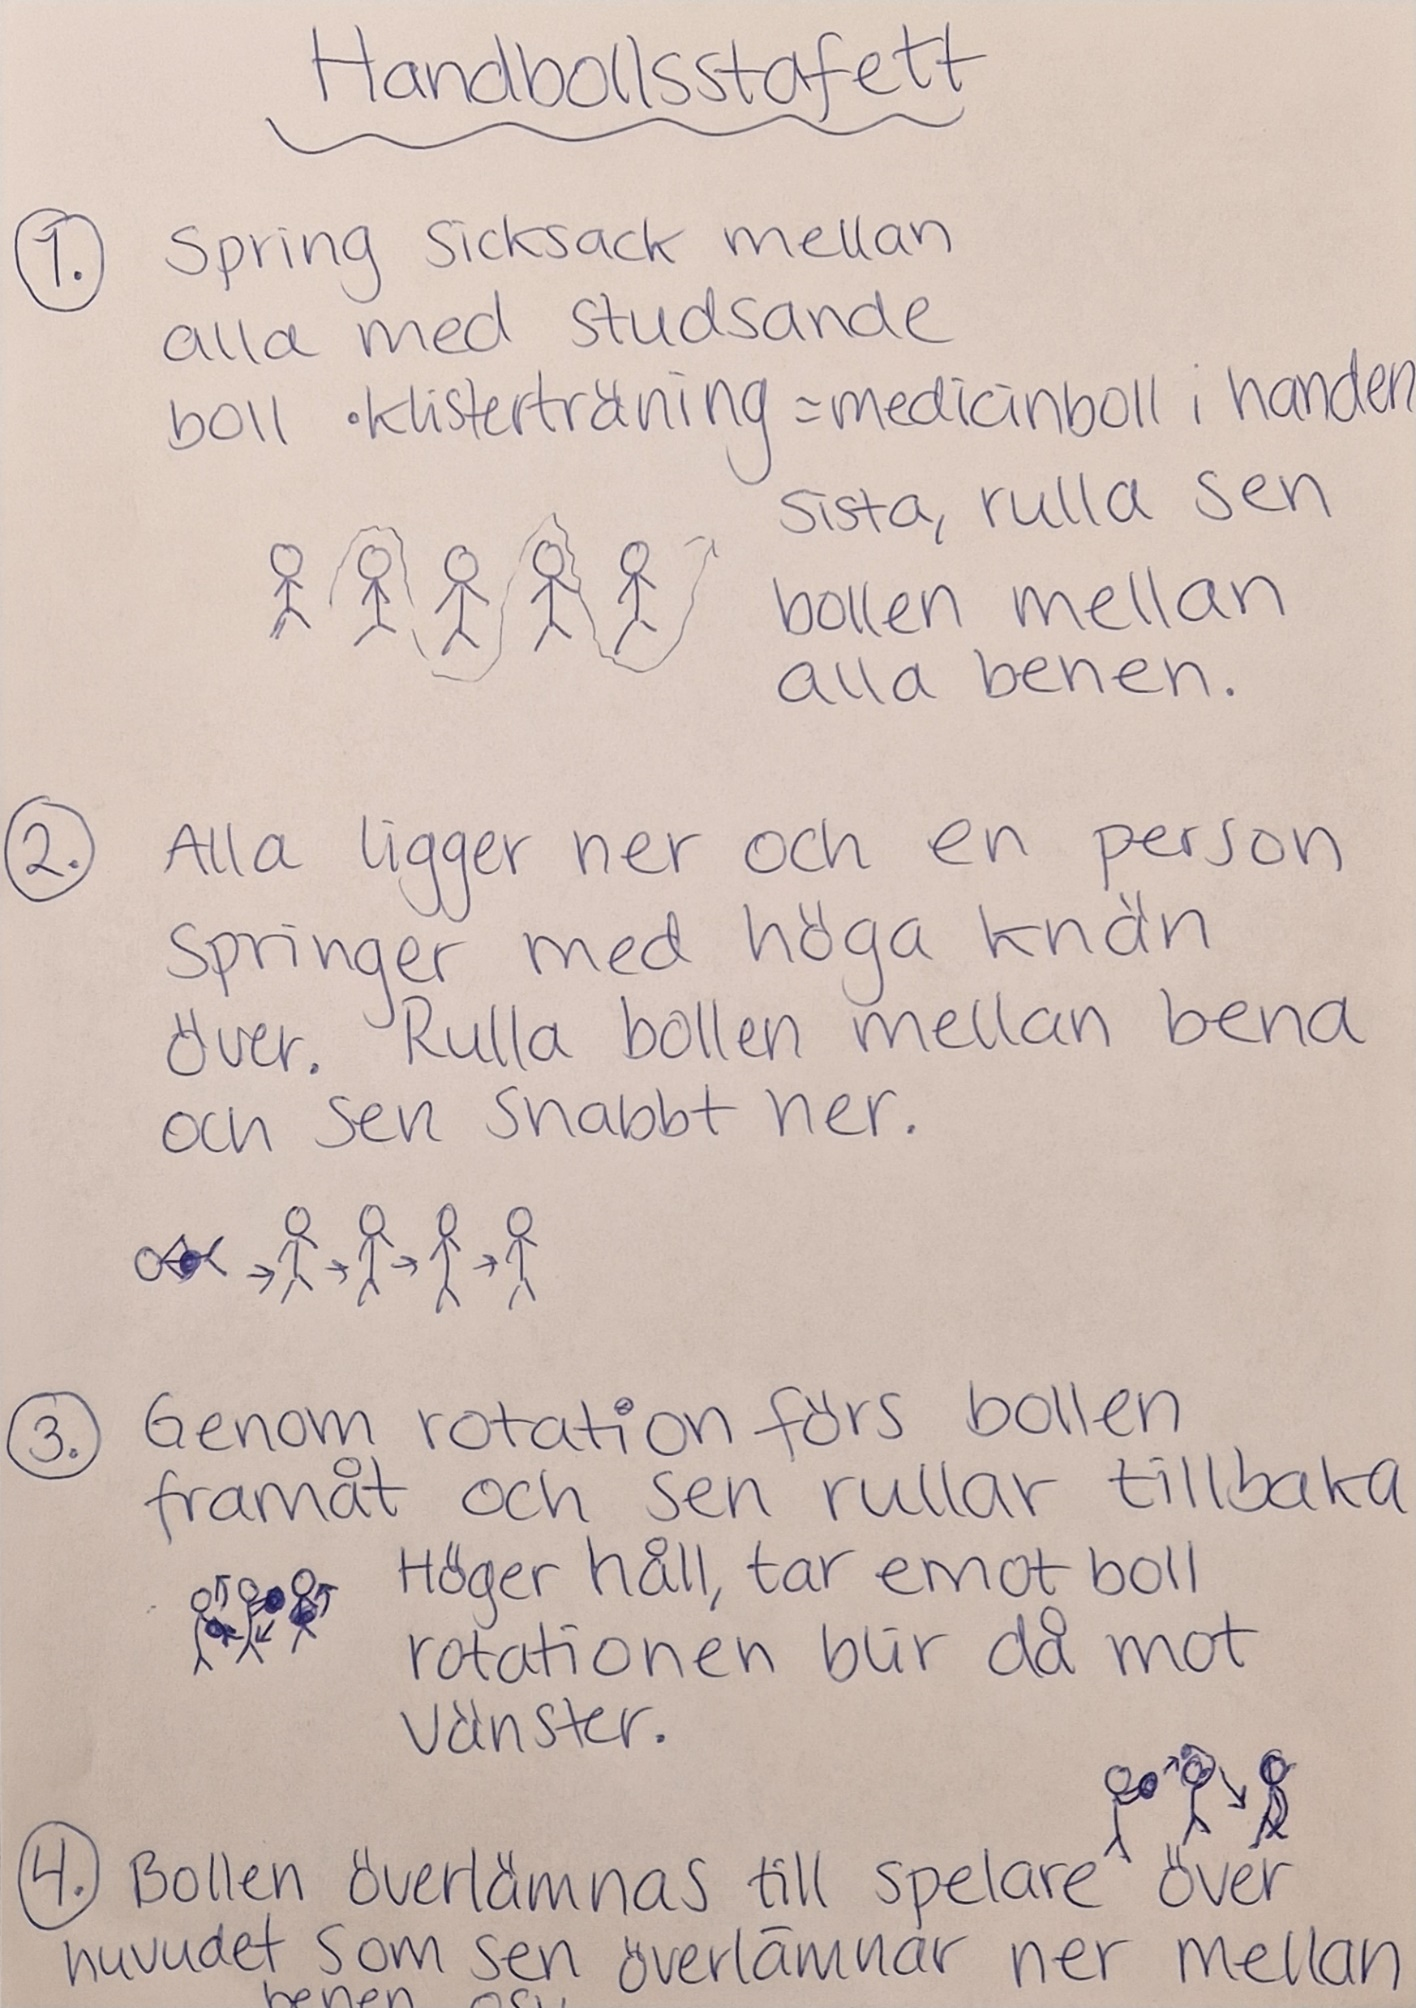 Handbollsstafett
1. Spring sicksack mellan
alla med studsande
boll •klisterträning = medicinboll i handen
sista, rulla sen
bollen mellan
alla benen.
2. Alla ligger ner och en person
springer med höga knän
över. Rulla bollen mellan bena
och sen snabbt ner.
3. Genom rotation förs bollen
framåt och sen rullar tillbaka
Höger håll, tar emot boll
rotationen blir då mot
vänster.
4. Bollen överlämnas till spelare över
huvudet som sen överlämnar ner mellan
benen osv